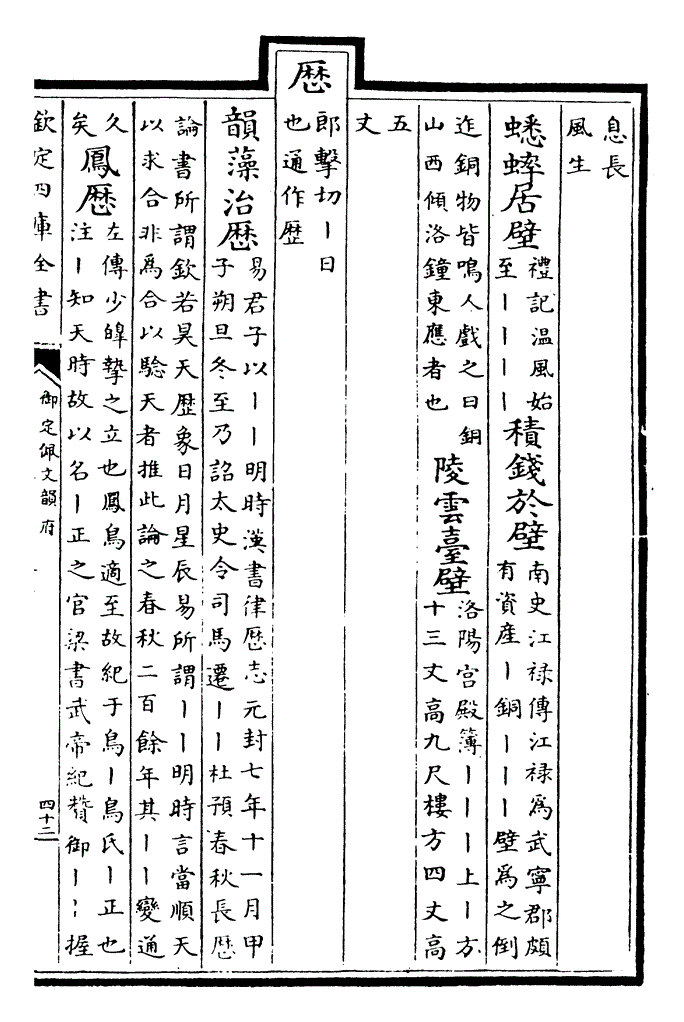 息長
風生
蟋蟀居壁禮記温風始
至丨丨丨丨
積錢於壁南史江禄傳江禄為武寧郡頗
有資産丨銅丨丨丨壁為之倒
迮銅物皆鳴人戲之曰銅
山西傾洛鐘東應者也
陵雲臺壁洛陽宫殿簿丨丨丨上丨方
十三丈高九尺樓方四丈高
五
丈
歴
郎擊切丨日
也通作歷
韻藻治歴易君子以丨丨明時漢書律歴志元封七年十一月甲
子朔旦冬至乃詔太史令司馬遷丨丨杜預春秋長歴
論書所謂欽若昊天歴象日月星辰易所謂丨丨明時言當順天
以求合非為合以驗天者推此論之春秋二百餘年其丨丨變通
久
矣
鳳歴左傳少皥摯之立也鳳鳥適至故紀于鳥丨鳥氏丨正也
注丨知天時故以名丨正之官梁書武帝紀贊御丨丨握
欽定四庫全書
御定佩文韻府
四十二